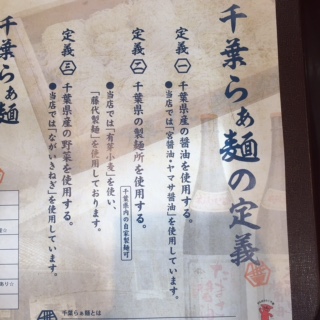 千葉らぁ麺の定義
定義㊀ 千葉県産の醤油を使用する。
●当店では「宮醤油・ヤマサ醤油」を使用しています。
定義㊁ 千葉県の製麺所を使用する。
千葉県内の自家製麺可
●当店では「有芽小麦」を使い、
「藤代製麺」を使用しております。
定義㊂ 千葉県産の野菜を使用する。
●当店では「ながいきねぎ」を使用しています。
千葉らぁ麺
千葉らぁ麺とは